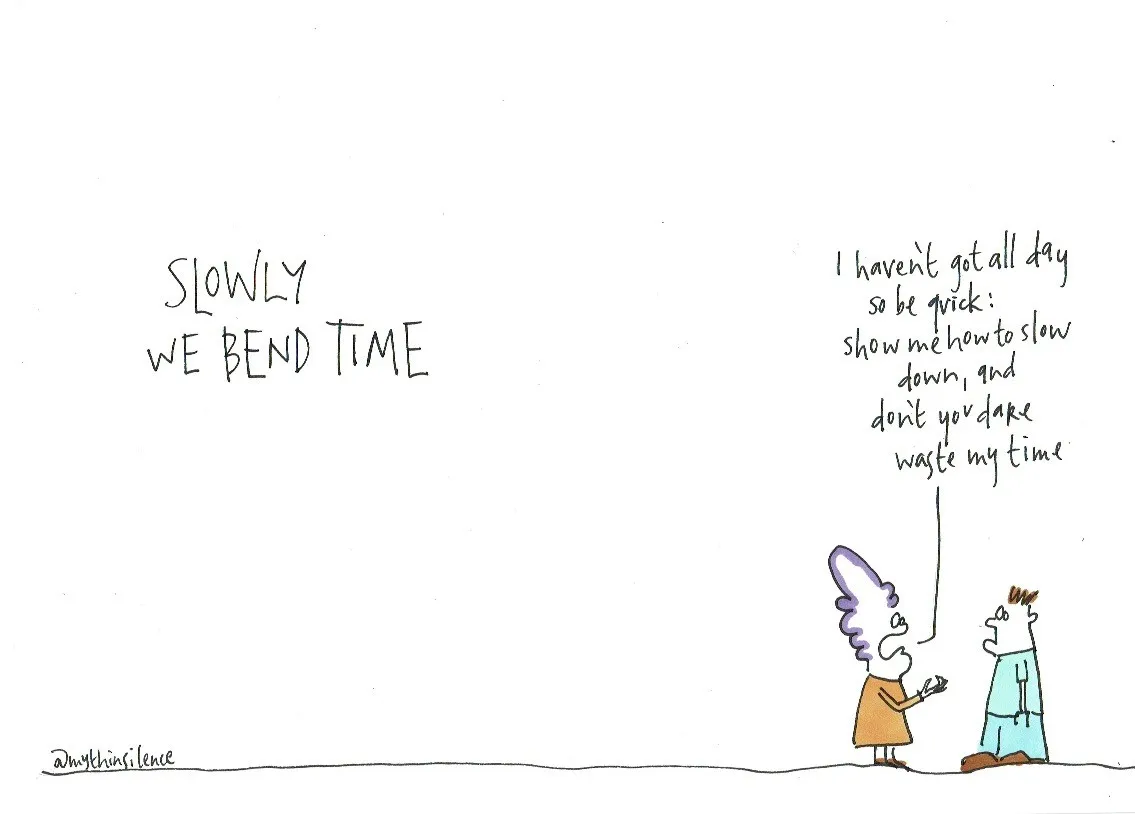 SLOWLY
WE BEND TIME
I haven't got all day
so be quick:
show me how to slow
down, and
don't you dare
waste my time
@mythinsilence